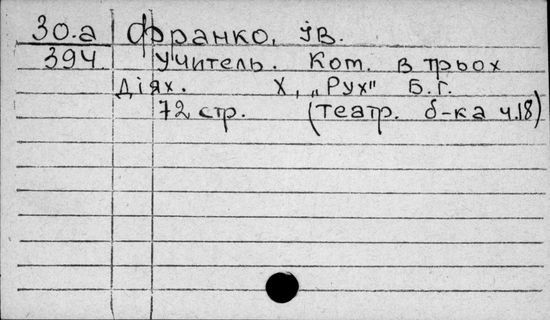 30.а Франко, Ів.
394 Учитель. Ком. в трьох
діях. Х, „Рух" Б.Г.
72 стр. (театр. б-ка ч.18)